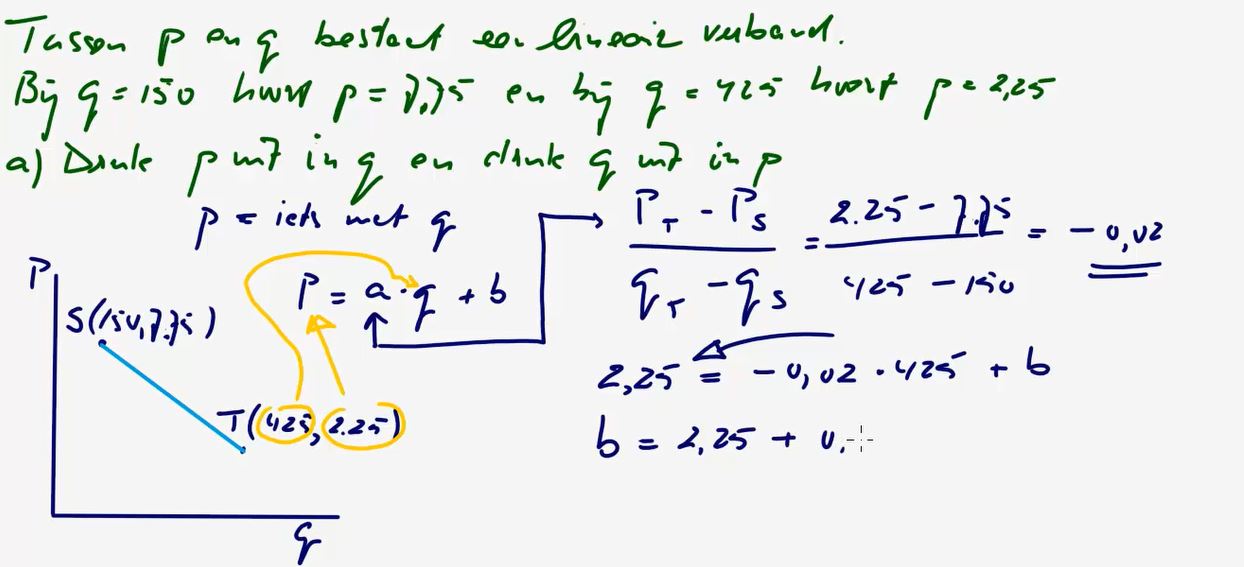 Tussen p en q bestaat een lineair verband.
Bij q = 150 hoort p = 7,75 en bij q = 425 hoort p = 2,25
a) Druk p uit in q en druk q uit in p
p = iets met q
P_T - P_S / q_T - q_S = 2.25 - 7.75 / 425 - 150 = -0,02
P = a · q + b
P
S(150, 7.75)
2,25 = -0,02 · 425 + b
T(425, 2.25)
b = 2,25 + 0,
q